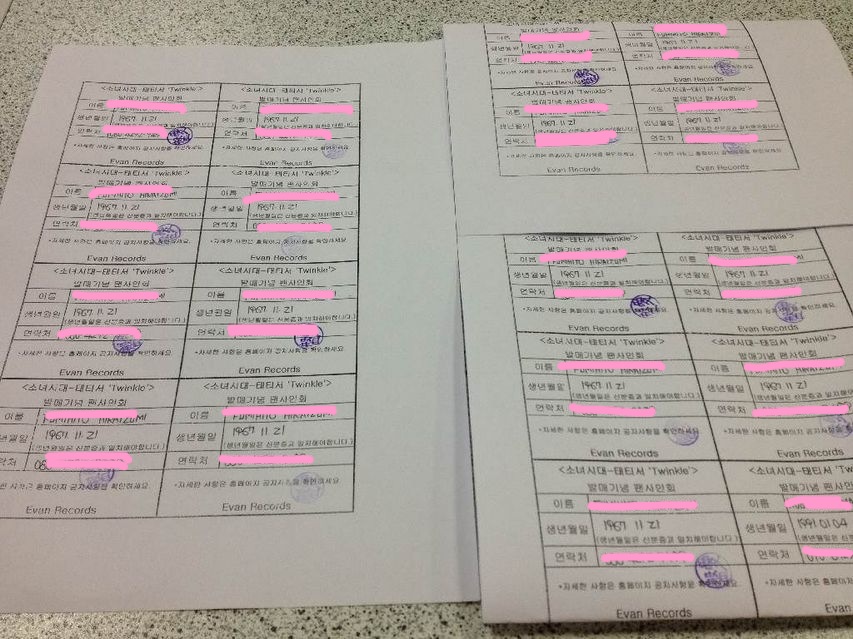 <소녀시대-태티서 'Twinkle'>
발매기념 팬사인회
이름
생년월일 1967. 11. 21
(생년월일은 신분증과 일치해야합니다.)
연락처
*자세한 사항은 홈페이지 공지사항을 확인하세요
Evan Records
<소녀시대-태티서 'Twinkle'>
발매기념 팬사인회
이름
생년월일 1967. 11. 21
연락처
*자세한 사항은 홈페이지 공지사항을 확인하세요
Evan Records
<소녀시대-태티서 'Twinkle'>
발매기념 팬사인회
이름
생년월일 1967 11 21
(생년월일은 신분증과 일치해야합니다.)
연락처
*자세한 사항은 홈페이지 공지사항을 확인하세요
Evan Records
<소녀시대-태티서 'Twinkle'>
발매기념 팬사인회
이름
생년월일 1967 11 21
(생년월일은 신분증과 일치해야합니다.)
연락처
*자세한 사항은 홈페이지 공지사항을 확인하세요
Evan Records
<소녀시대-태티서 'Twinkle'>
발매기념 팬사인회
이름
생년월일 1967 11 21
(생년월일은 신분증과 일치해야합니다.)
연락처
*자세한 사항은 홈페이지 공지사항을 확인하세요
Evan Records
<소녀시대-태티서 'Twinkle'>
발매기념 팬사인회
이름
생년월일 1967 11 21
(생년월일은 신분증과 일치해야합니다.)
연락처
*자세한 사항은 홈페이지 공지사항을 확인하세요
Evan Records
<소녀시대-태티서 'Twinkle'>
발매기념 팬사인회
이름
년월일 1967 11 21
(생년월일은 신분증과 일치해야합니다.)
락처
사항은 홈페이지 공지사항을 확인하세요
Evan Records
<소녀시대-태티서 'Twinkle'>
발매기념 팬사인회
이름
생년월일 1967 11 21
(생년월일은 신분증과 일치해야합니다.)
연락처
*자세한 사항은 홈페이지 공지사항을 확인하세요
Evan Records
발매기념 팬사인회
이름
생년월일 1967 11 21
연락처
*자세한 사항은 홈페이지 공지사항을 확인하세요
Evan Records
이름
생년월일 1967 11 21
연락처
*자세한 사항은 홈페이지 공지사항을 확인하세요
Evan Records
<소녀시대-태티서 'Twinkle'>
발매기념 팬사인회
이름
생년월일 1967 11 21
연락처
*자세한 사항은 홈페이지 공지사항을 확인하세요
Evan Records
<소녀시대-태티서 'Twinkle'>
발매기념 팬사인회
이름
생년월일 1967 11 21
연락처
*자세한 사항은 홈페이지 공지사항을 확인하세요
Evan Records
<소녀시대-태티서 'Twinkle'>
발매기념 팬사인회
이름
생년월일 1967 11 21
(생년월일은 신분증과 일치해야합니다.)
연락처
*자세한 사항은 홈페이지 공지사항을 확인하세요
Evan Records
<소녀시대-태티서 'Twinkle'>
발매기념 팬사인회
이름
생년월일 1967 11 21
(생년월일은 신분증과 일치해야합니다.)
연락처
*자세한 사항은 홈페이지 공지사항을 확인하세요
Evan Records
<소녀시대-태티서 'Twinkle'>
발매기념 팬사인회
이름
생년월일 1967 11 21
(생년월일은 신분증과 일치해야합니다.)
연락처
*자세한 사항은 홈페이지 공지사항을 확인하세요
Evan Records
<소녀시대-태티서 'Twinkle'>
발매기념 팬사인회
이름
생년월일 1967 11 21
연락처
*자세한 사항은 홈페이지 공지사항을
Evan Records
<소녀시대-태티서 'Twinkle'>
발매기념 팬사인회
이름
생년월일 1967 11 21
(생년월일은 신분증과 일치해야합니다.)
연락처
*자세한 사항은 홈페이지 공지사항을 확인하세요
Evan Records
<소녀시대-태티서 'Twinkle'
발매기념 팬사인회
이름
생년월일 1991.01.04
(생년월일은 신분
연락처
*자세한 사항은 홈페이지 공지
Evan